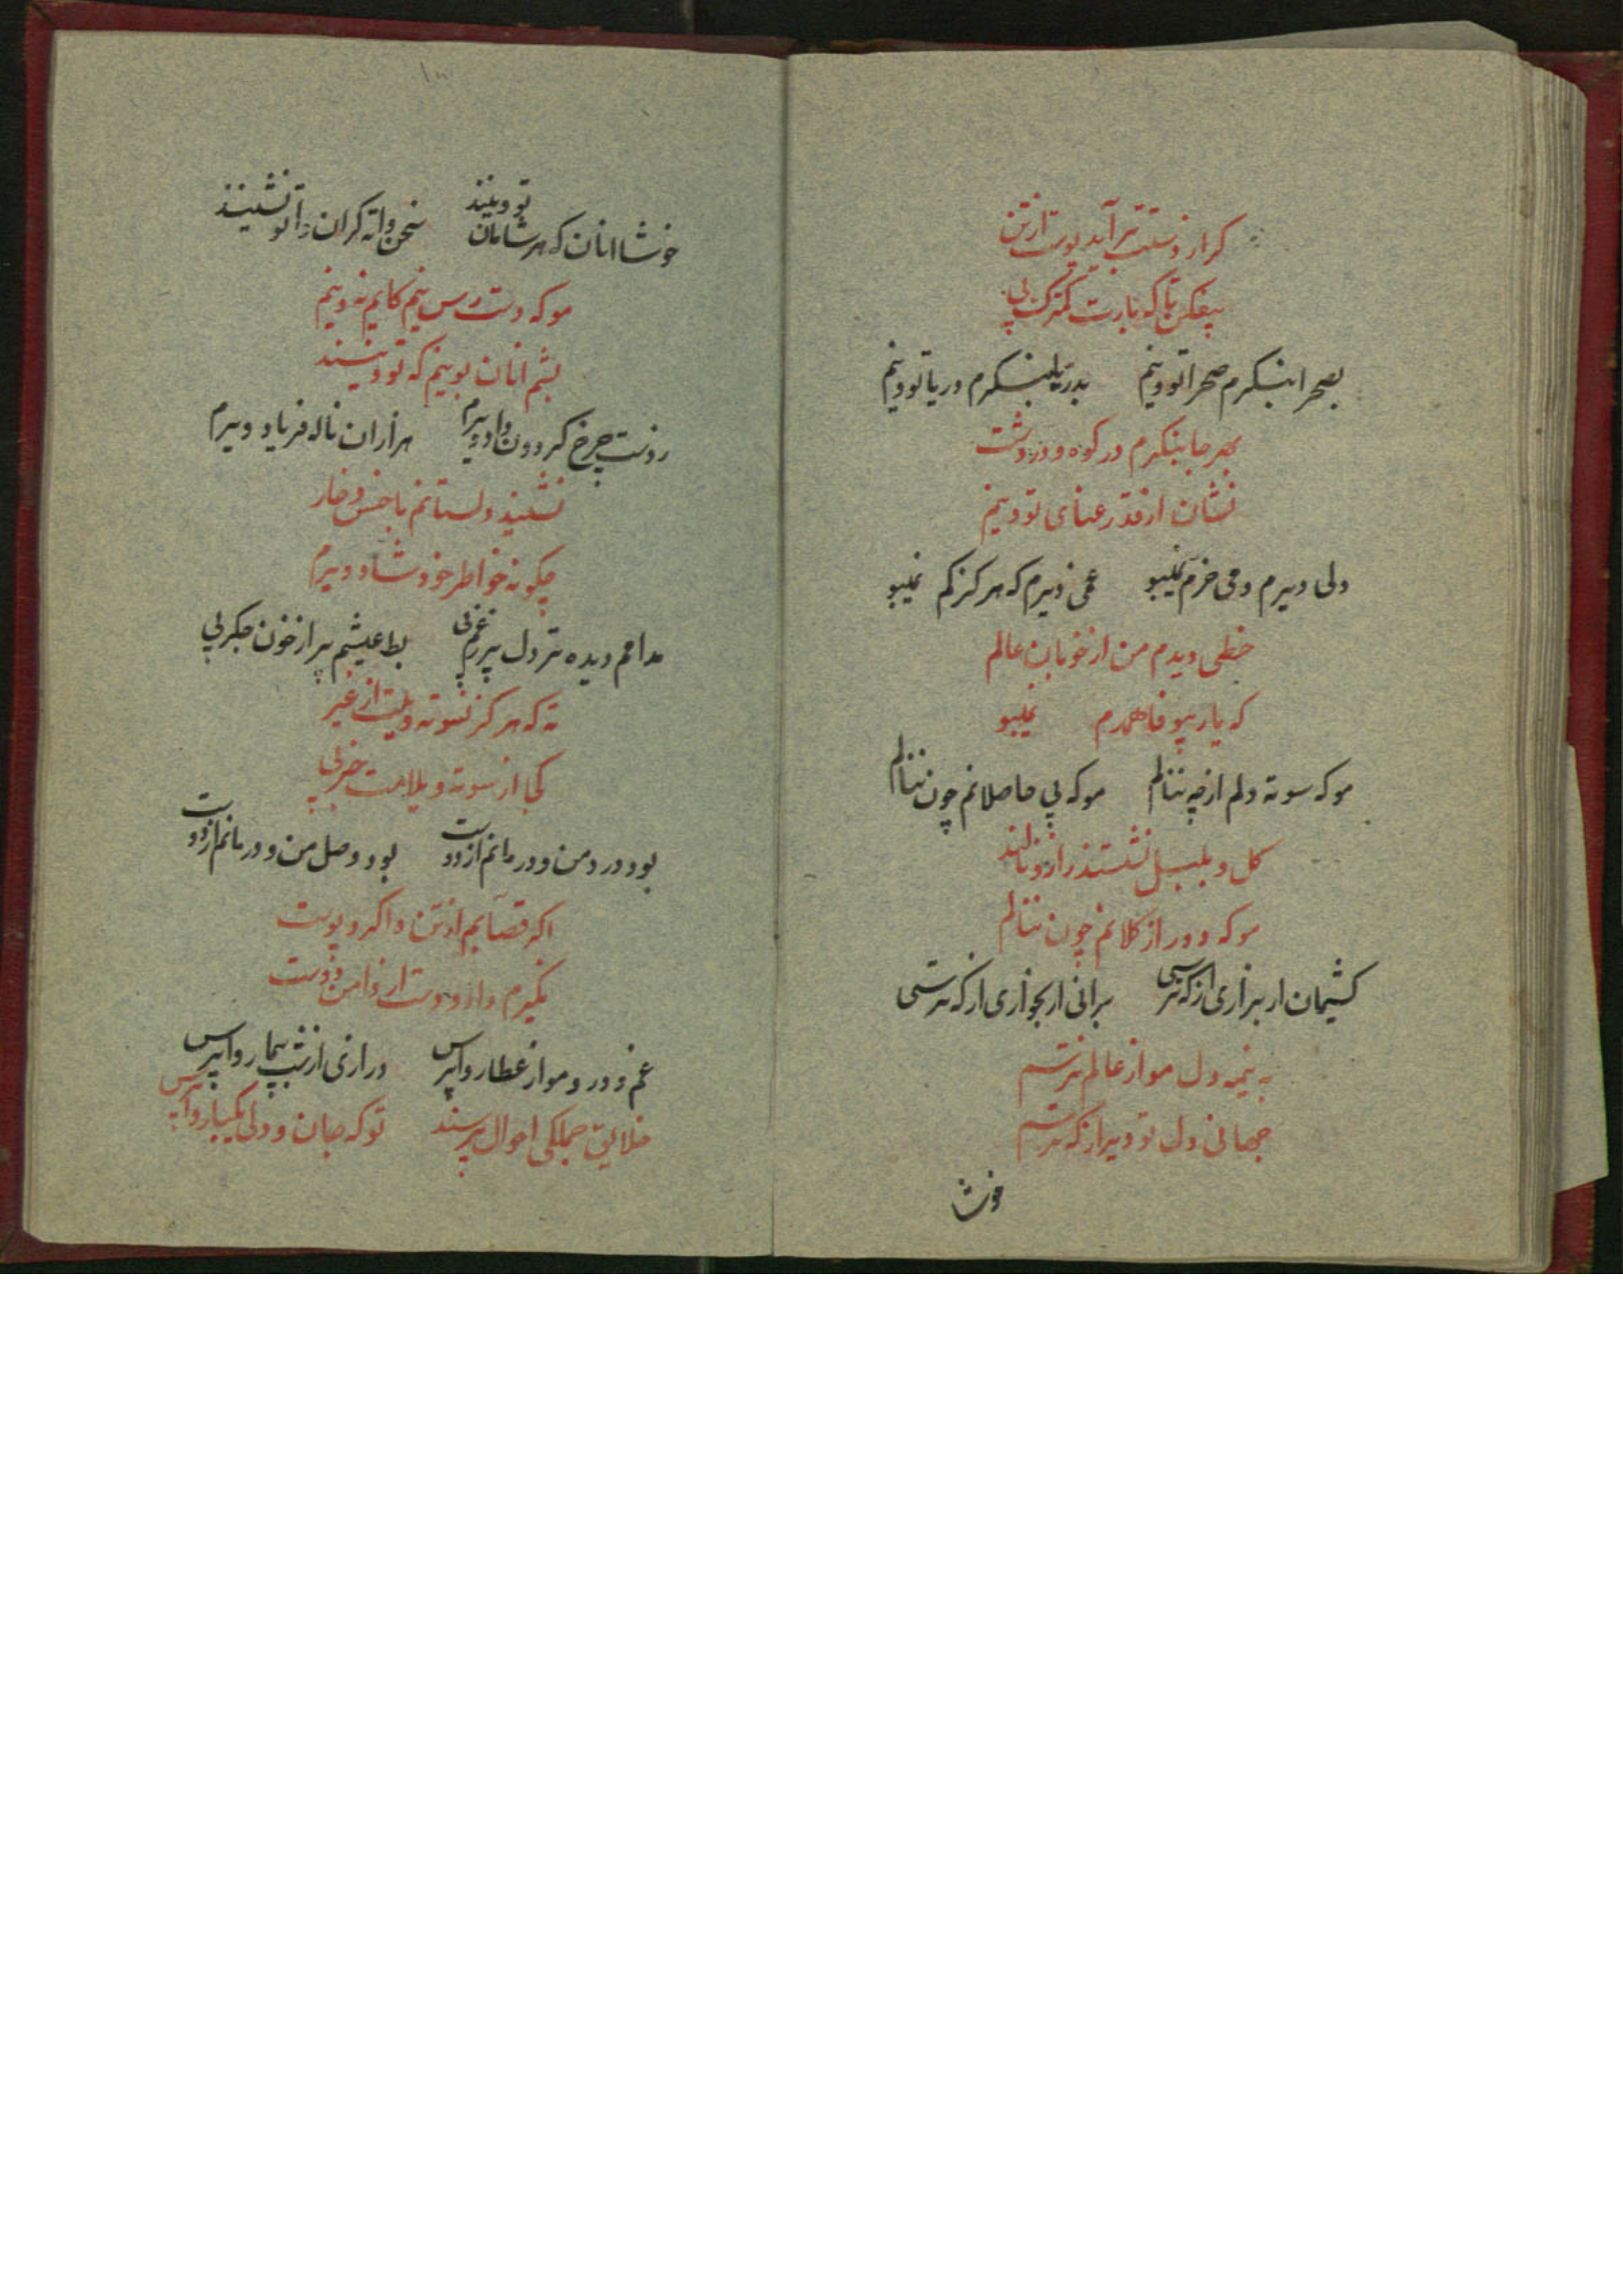 کر از دستت بر آید پوست از تن
بیفکن تا که بارت کمترک بی
بصحرا بنکرم صحرا تووینم بدریا بنکرم دریا تووینم
بهر جا بنکرم در کوه و در دشت
نشان از قد رعنای تو وینم
دلی دیرم دمی خرم نمیبو غمی دیرم که هرکز کم نمیبو
خطی دیدم من از خوبان عالم
که یار بیوفا همدم نمیبو
موکه سوته دلم از چه ننالم موکه بی حاصلانم چون ننالم
کل و بلبل نشستند زار نالند
موکه دور از کلانم چون ننالم
کشیمان ار بزاری از که ترسی برانی ار بخواری از که ترسی
به نیمه دل مو از عالم نترسم
جهانی دل تو دیر از که ترسم
خوشا
خوشا انان که هر شامان تو وینند سخن واته کران واتو نشینند
موکه دست رس نیم کایم ته وینم
بشم انان بوینم که تو وینند
ز دست چرخ کردون داد دیرم هزاران ناله فریاد دیرم
نشیند دلستانم با خس و خار
چکونه خواطر خود شاد دیرم
مدامم دیده تر دل پر زغم بی بط عیشم پر از خون جکر بی
ته که هرکز نسوته دیلت از غیر
کجا از سوته دیلانت خبر بی
بود درد من و درمانم از دوست بود وصل من و درمانم از دوست
اکر قصابم از تن واکرد پوست
نکیرم دازو دست از دامن دوست
غم و درد مو از عطار واپرس درازی از شب بیمار واپرس
خلایق جملکی احوال پرسند توکه جان و دلی یکبار واپرس